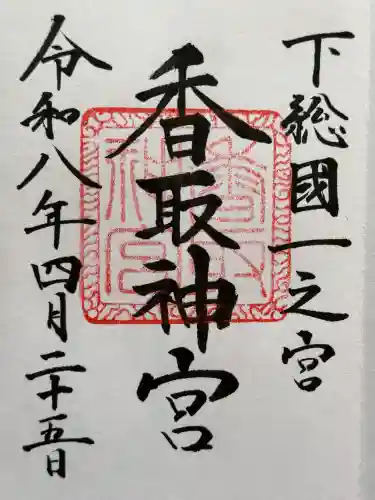 下総國一之宮
香取神宮
令和八年四月二十五日
香取神宮